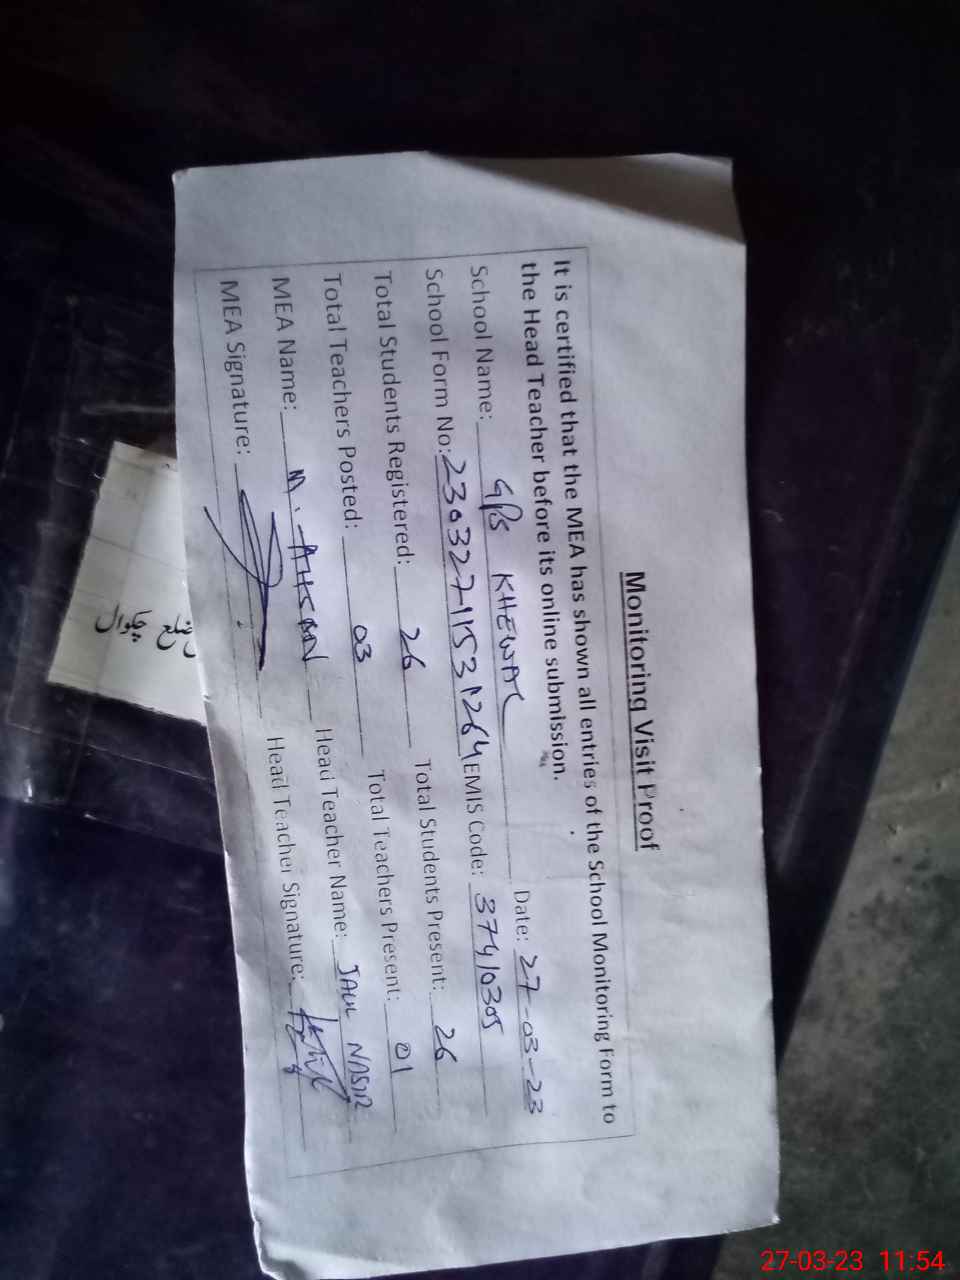 Monitoring Visit Proof
It is certified that the MEA has shown all entries of the School Monitoring Form to
the Head Teacher before its online submission.
School Name: GPS KHEWAL Date: 27-03-23
School Form No: 23032711531264 EMIS Code: 37410305
Total Students Registered: 26 Total Students Present: 26
Total Teachers Posted: 03 Total Teachers Present: 01
MEA Name: M. AHSAN Head Teacher Name: NASIR
MEA Signature: Head Teacher Signature:
ضلع چکوال
27-03-23 11:54